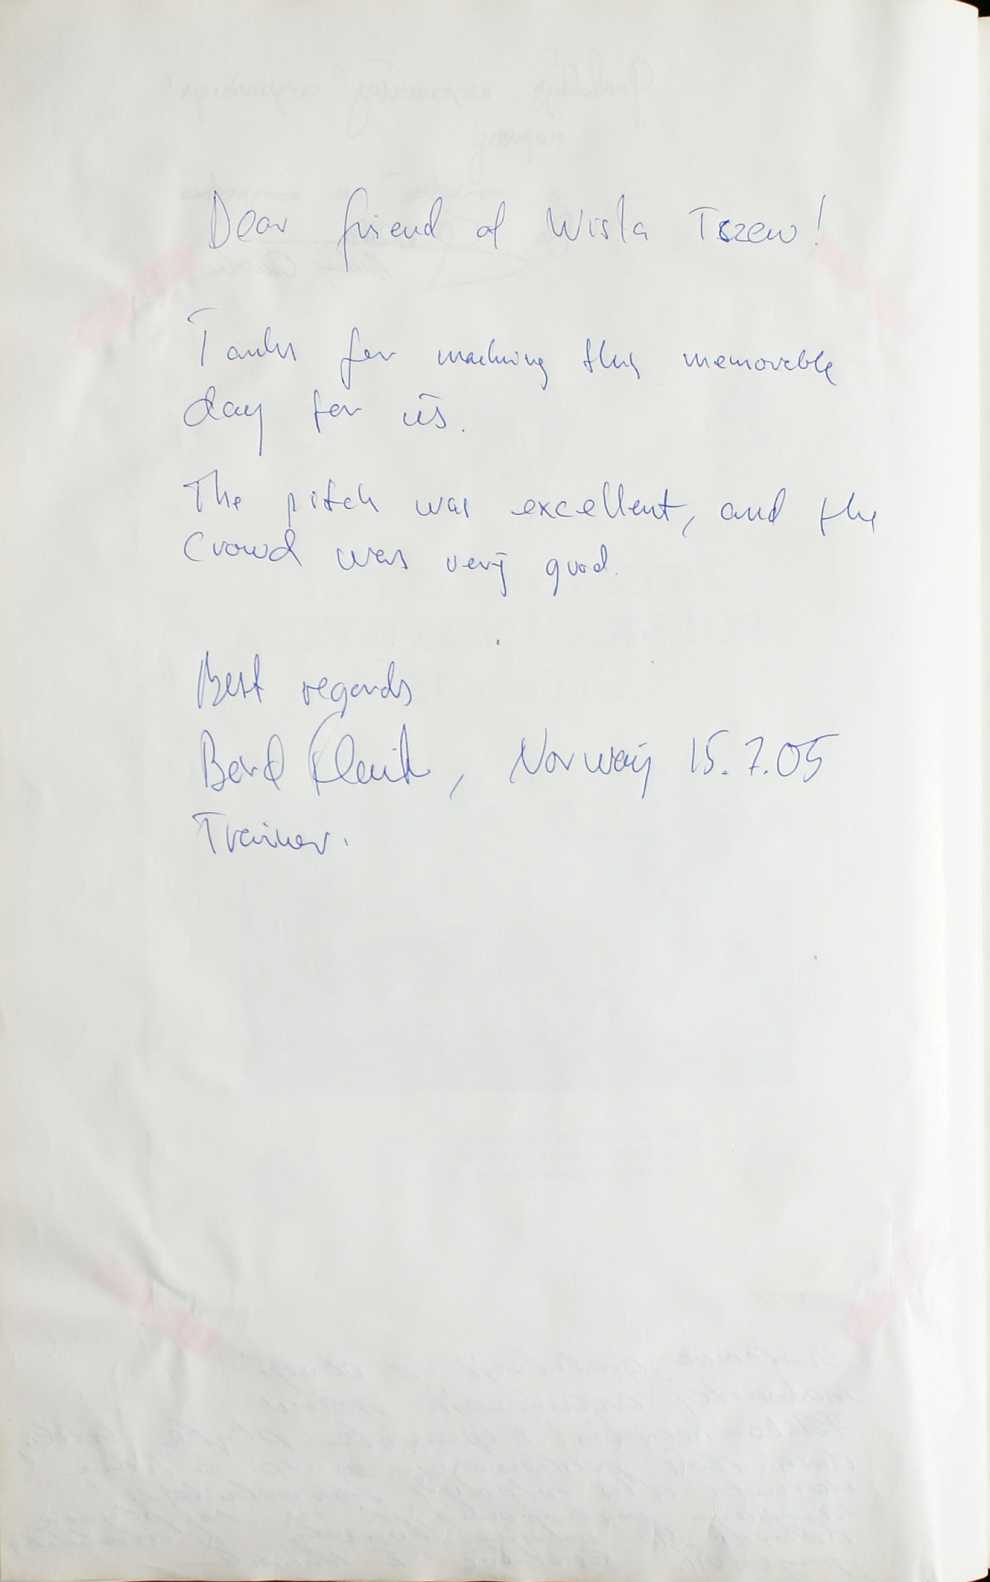 Dear friend of Wisla Tszew!
Tanks for making this memorable
day for us.
The pitch was excellent, and the
Crowd was very good.
Best regards
Bård, Norway 15.7.05
Trainer.